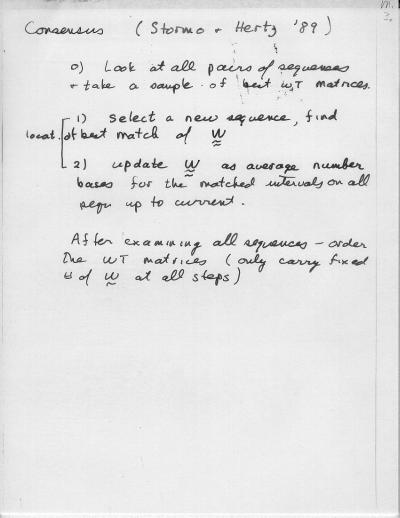 m.
3.
Consensus (Stormo + Hertz '89)
0) Look at all pairs of sequences
+ take a sample of best WT matrices.
1) select a new sequence, find
locat. of best match of W
2) update W as average number
bases for the matched intervals on all
seqn up to current.
After examining all sequences - order
the WT matrices (only carry fixed
# of W at all steps)